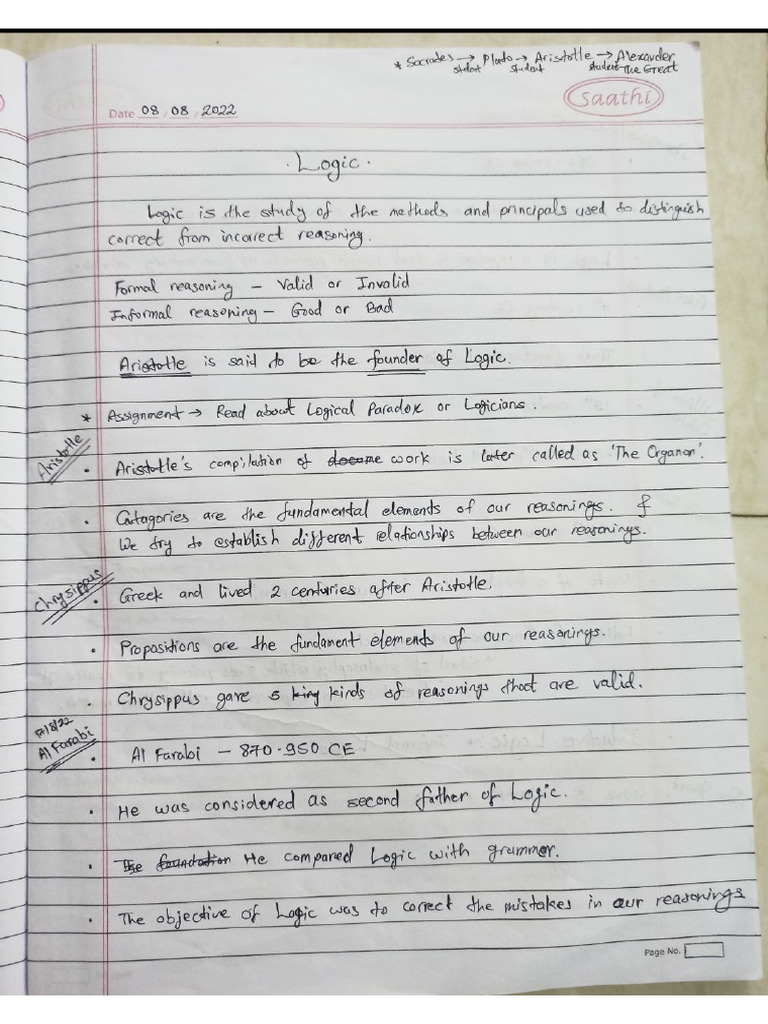 * Socrates → Plato → Aristotle → Alexander
student student student The Great
Saathi
Date 08 / 08 / 2022
. Logic .
Logic is the study of the methods and principals used to distinguish
correct from incorect reasoning.
Formal reasoning – Valid or Invalid
Informal reasoning – Good or Bad
Aristotle is said to be the founder of Logic.
* Assignment → Read about Logical Paradox or Logicians.
Aristotle
. Aristotle's compilation of docume work is later called as 'The Organon'.
. Catagories are the fundamental elements of our reasonings. &
We try to establish different relationships between our reasonings.
Chrysippus
. Greek and lived 2 centuries after Aristotle.
. Propositions are the fundament elements of our reasonings.
. Chrysippus gave 5 king kinds of reasonings that are valid.
17/8/22
Al Farabi
. Al Farabi – 870-950 CE
. He was considered as second father of Logic.
. The foundation He compared Logic with grammer.
. The objective of Logic was to correct the mistakes in our reasonings
Page No.